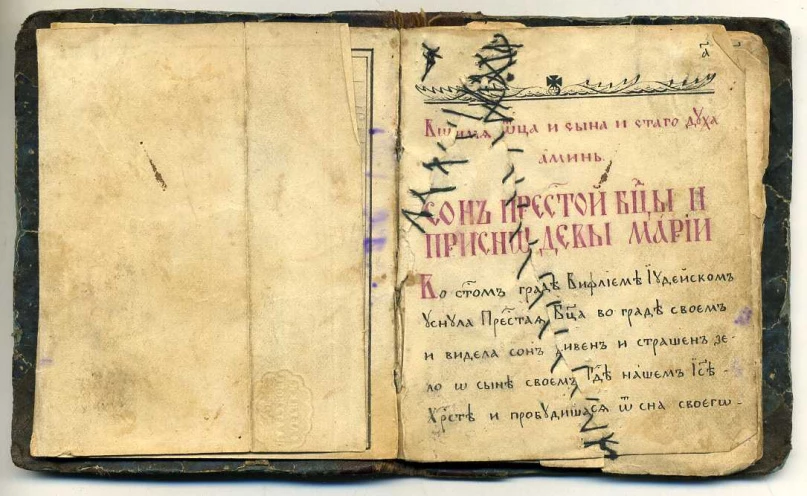 а҃
Во имя ѿца и сына и стаго духа
аминь.
СОНЪ ПРЕСТОЙ БЦЫ И
ПРИСНѠ ДЕВЫ МАРІИ
Во стомъ градѣ Вифлїемѣ Їудейскомъ
уснула Престая Бца во градѣ своемъ
и видела сонъ дивенъ и страшенъ зе-
ло ѡ сынѣ своемъ Гдѣ нашемъ Їсѣ-
Хрстѣ и пробудившася ѿ сна своегѡ-